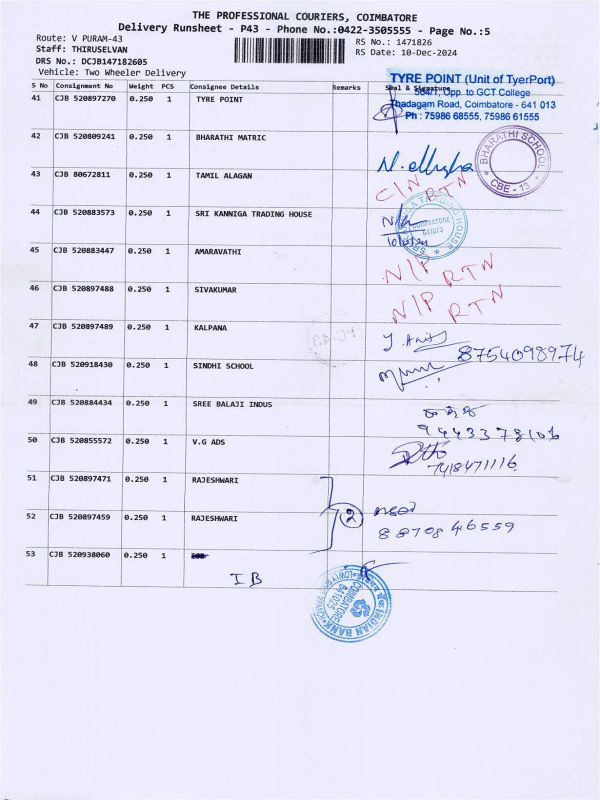 THE PROFESSIONAL COURIERS, COIMBATORE
Delivery Runsheet - P43 - Phone No.:0422-3505555 - Page No.:5
Route: V PURAM-43
RS No.: 1471826
Staff: THIRUSELVAN
RS Date: 10-Dec-2024
DRS No.: DCJB147182605
Vehicle: Two Wheeler Delivery
TYRE POINT (Unit of TyerPort)
S No Consignment No Weight PCS Consignee Details Remarks Seal & Signature
564/1, Opp. to GCT College
41 CJB 520897270 0.250 1 TYRE POINT
Thadagam Road, Coimbatore - 641 013
Ph : 75986 68555, 75986 61555
42 CJB 520809241 0.250 1 BHARATHI MATRIC
BHARATHI SCHOOL
CBE - 13
43 CJB 80672811 0.250 1 TAMIL ALAGAN
C/N RTN
44 CJB 520883573 0.250 1 SRI KANNIGA TRADING HOUSE
COIMBATORE
641013
TRADING HOUSE
45 CJB 520883447 0.250 1 AMARAVATHI
N/P RTN
46 CJB 520897488 0.250 1 SIVAKUMAR
N/P RTN
47 CJB 520897489 0.250 1 KALPANA
PC-43
8754098974
48 CJB 520918430 0.250 1 SINDHI SCHOOL
49 CJB 520884434 0.250 1 SREE BALAJI INDUS
50 CJB 520855572 0.250 1 V.G ADS
7418471116
51 CJB 520897471 0.250 1 RAJESHWARI
2
52 CJB 520897459 0.250 1 RAJESHWARI
88708 46559
53 CJB 520938060 0.250 1
IB
INDIAN BANK
COIMBATORE
641025